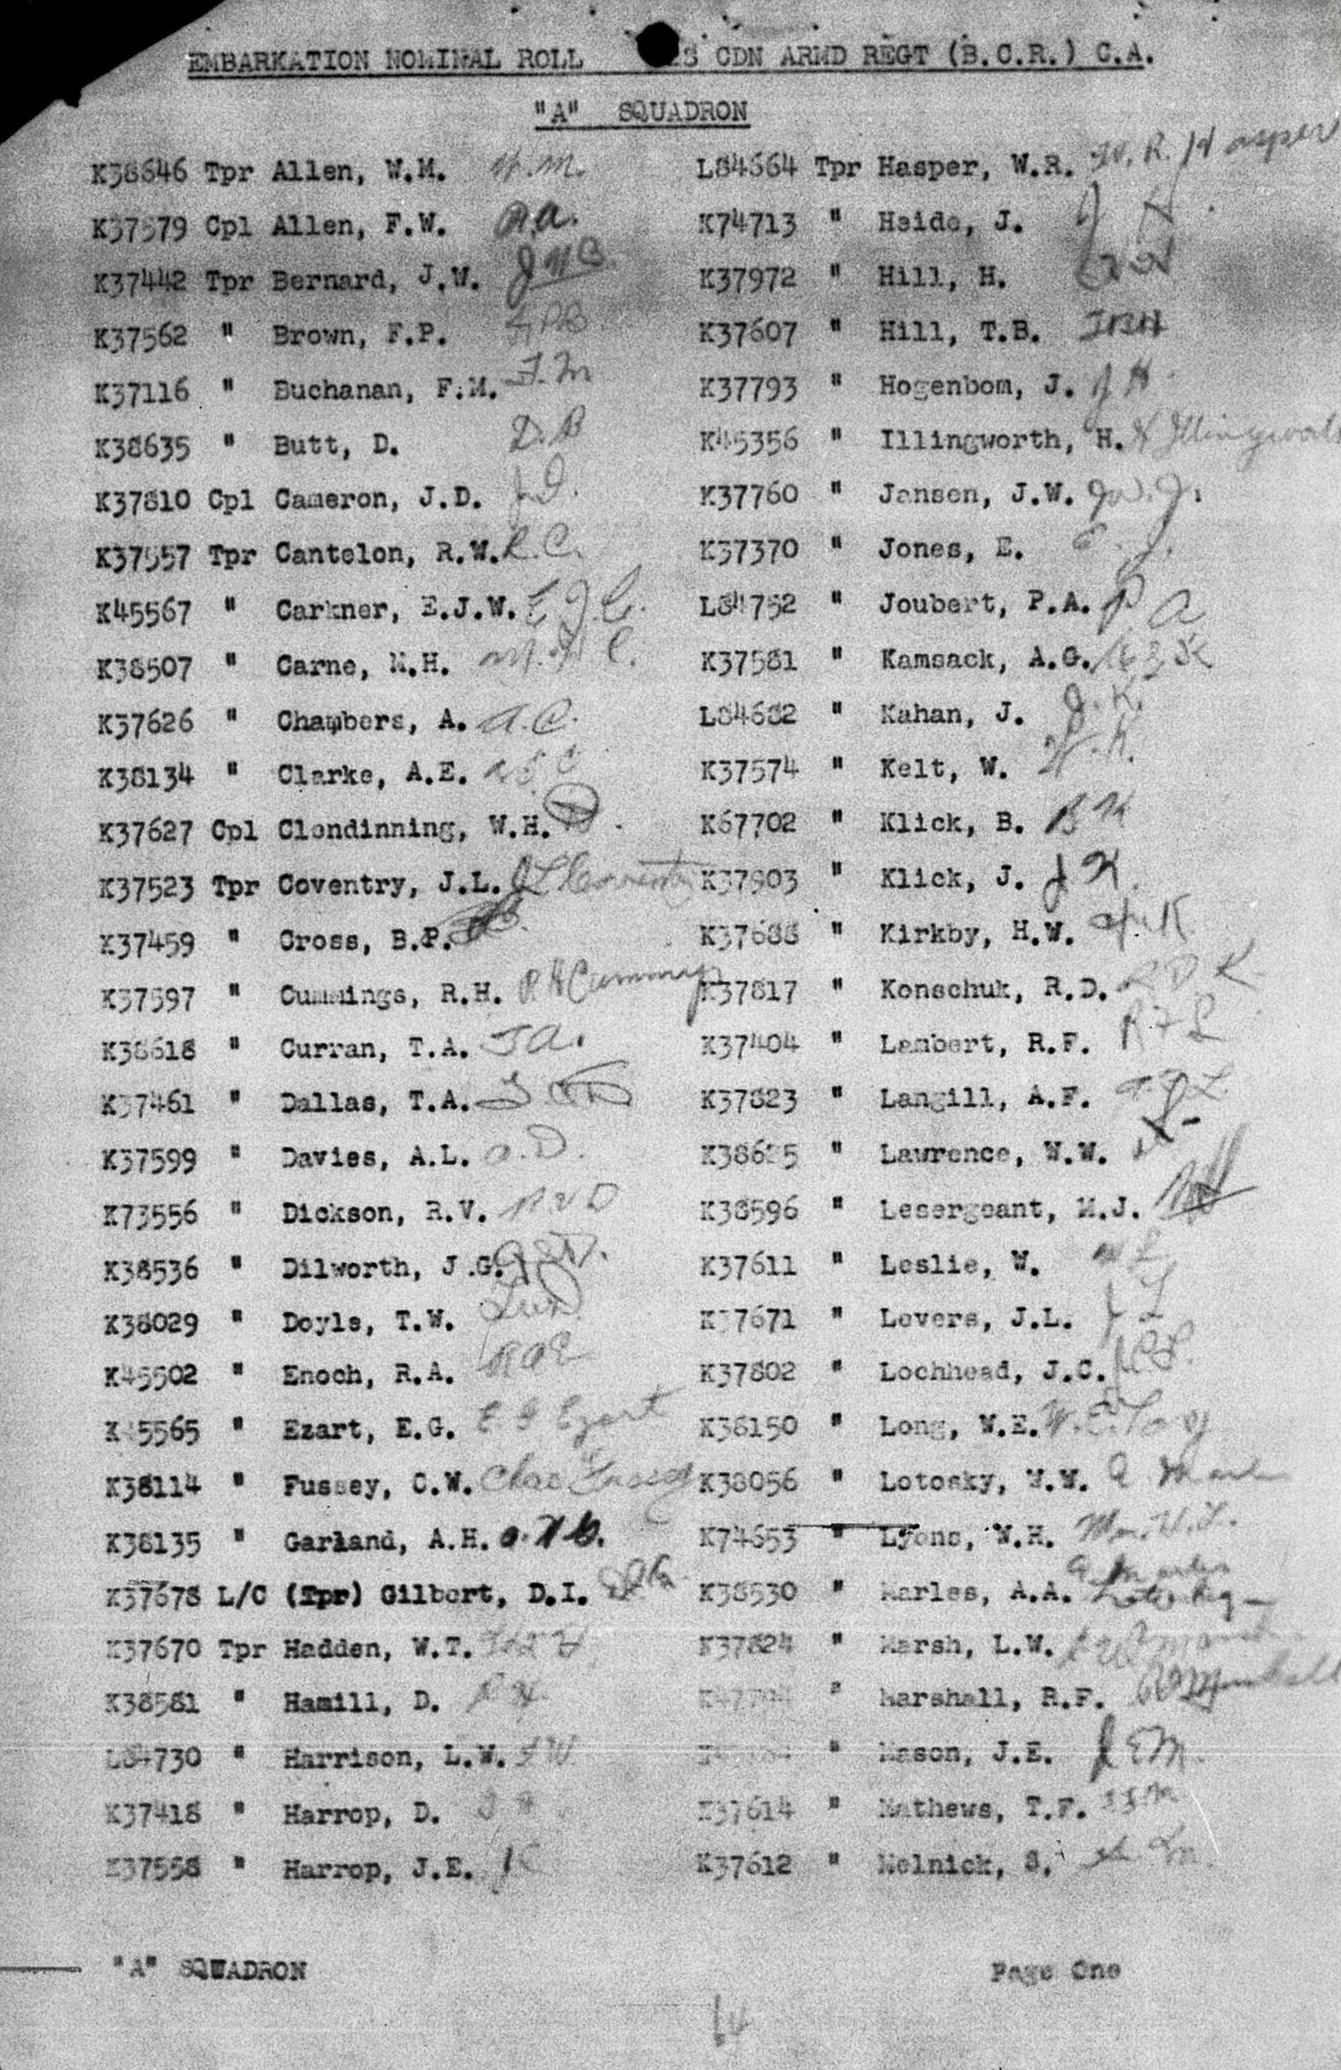 EMBARKATION NOMINAL ROLL 28 CDN ARMD REGT (B.C.R.) C.A.
"A" SQUADRON
K38646 Tpr Allen, W.M. W.M.
K37579 Cpl Allen, F.W.
K37442 Tpr Bernard, J.W. JWB
K37562 " Brown, F.P. FPB
K37116 " Buchanan, F.M. F.M
K38635 " Butt, D. D.B
K37810 Cpl Cameron, J.D. J.D.
K37557 Tpr Cantelon, R.W. R.C.
K45567 " Carkner, E.J.W. E.J.C.
K38507 " Carne, M.H. M.H.C.
K37626 " Chambers, A. A.C.
K38134 " Clarke, A.E. A.E.C
K37627 Cpl Clendinning, W.H.
K37523 Tpr Coventry, J.L. JL Coventry
K37459 " Cross, B.P.
K37597 " Cummings, R.H. RH Cummings
K38618 " Curran, T.A. T.A.
K37461 " Dallas, T.A. TAD
K37599 " Davies, A.L. A.D.
K73556 " Dickson, R.V. RVD
K38536 " Dilworth, J.G.
K38029 " Doyle, T.W. TWD
K45502 " Enoch, R.A. RAE
K45565 " Ezart, E.G. E G Ezart
K38114 " Fussey, C.W. Chas Fussey
K38135 " Garland, A.H. A.H.G.
K37678 L/C (Tpr) Gilbert, D.I.
K37670 Tpr Hadden, W.T.
K38581 " Hamill, D.
L84730 " Harrison, L.W.
K37418 " Harrop, D.
K37558 " Harrop, J.E.
L84664 Tpr Hasper, W.R. W.R. Hasper
K74713 " Heide, J. J H.
K37972 " Hill, H.
K37607 " Hill, T.B. TBH
K37793 " Hogenbom, J. J H.
K45356 " Illingworth, H. H Illingworth
K37760 " Jansen, J.W. JW.J.
K37370 " Jones, E. E. J.
L84752 " Joubert, P.A. P A
K37581 " Kamsack, A.G.
L84682 " Kahan, J. J.K.
K37574 " Kelt, W. W.K.
K67702 " Klick, B. BK
K37903 " Klick, J. J K.
K37688 " Kirkby, H.W.
K37817 " Konschuk, R.D. R D K
K37404 " Lambert, R.F. R F L
K37823 " Langill, A.F. A.F L.
" Lawrence, W.W.
K38596 " Lesergeant, M.J.
K37611 " Leslie, W. W L
K37671 " Levers, J.L. J L
K37802 " Lochhead, J.C. JCL.
K38150 " Long, W.E. W.E. Long
K38056 " Lotosky, W.W.
K74653 " Lyons, W.H. Wm.H.L.
K38530 " Marles, A.A. A. Marles
K37824 " Marsh, L.W. Marsh
" Marshall, R.F. RF Marshall
" Mason, J.E. J E M.
K37614 " Mathews, T.F. TFM
K37612 " Melnick, S.
"A" SQUADRON Page One